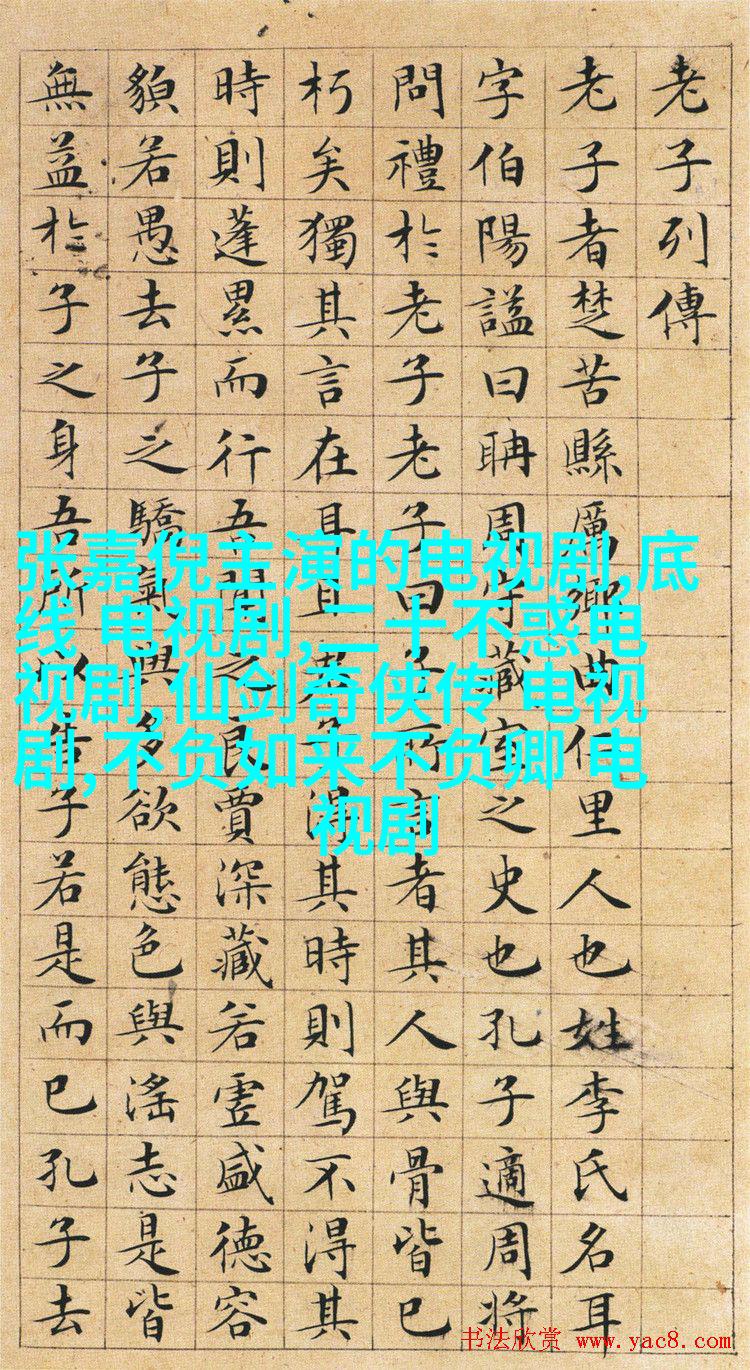 老子列傳
老子者楚苦縣厲鄉曲仁里人也姓李氏名耳
字伯陽諡曰聃周守藏室之史也孔子適周將
問禮於老子老子曰子所言者其人與骨皆已
朽矣獨其言在耳且君子得其時則駕不得其
時則蓬累而行吾聞之良賈深藏若虛盛德容
貌若愚去子之驕氣與多欲態色與淫志是皆
無益於子之身吾所以告子若是而已孔子去
张嘉倪主演的电视剧,底
线 电视剧,二十不惑电
视剧,仙剑奇侠传 电视
剧,不负如来不负卿 电
视剧
书法欣赏 www.yac8.com